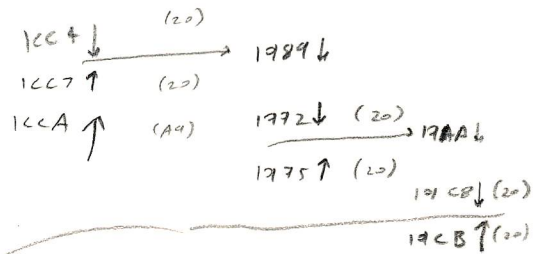 1CC4 ↓ (20) → 1989 ↓
1CC7 ↑ (20)
1CCA ↑ (A9)
1972 ↓ (20) → 19AA ↓
1975 ↑ (20)
19C8 ↓ (20)
19CB ↑ (20)